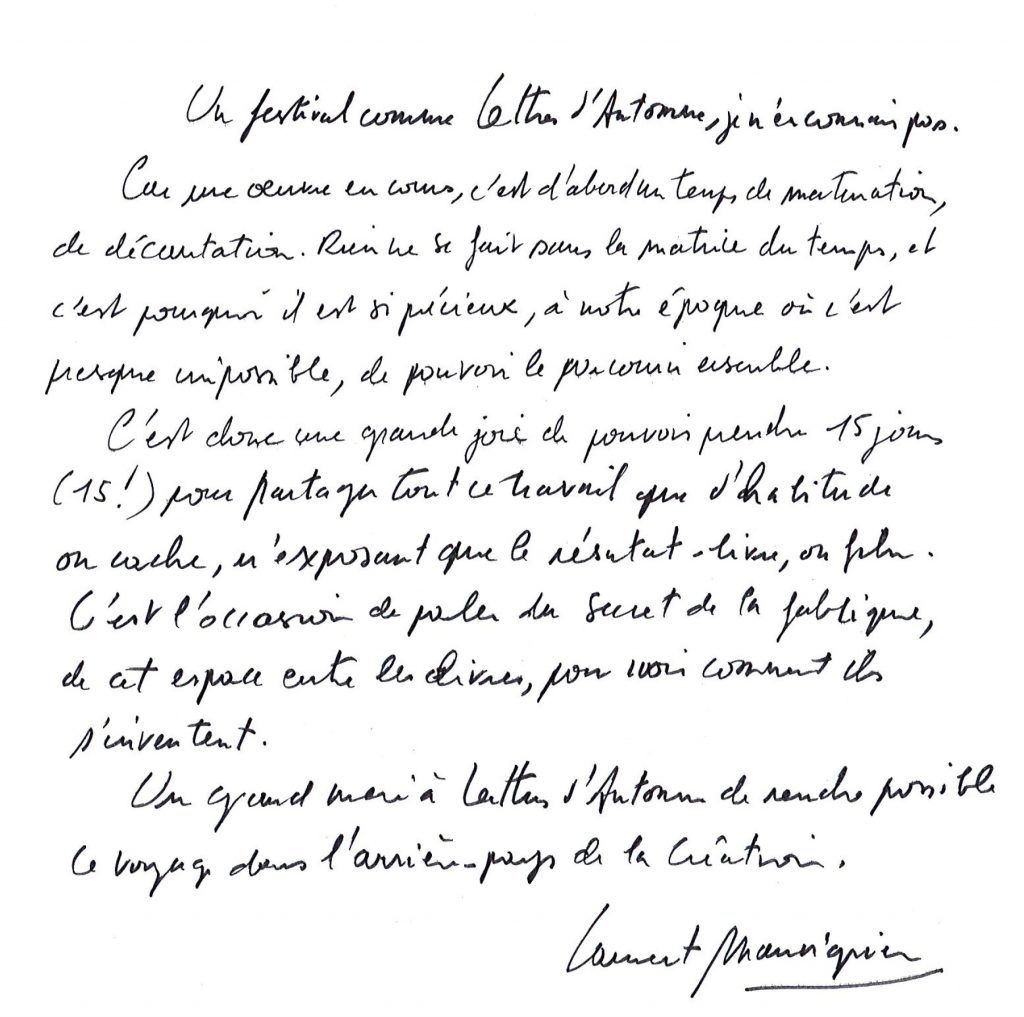 Un festival comme Lettres d'Automne, je n'en connais pas.
Car une œuvre en cours, c'est d'abord un temps de maturation,
de décantation. Rien ne se fait sans la matrice du temps, et
c'est pourquoi il est si précieux, à notre époque où c'est
presque impossible, de pouvoir le parcourir ensemble.
C'est donc une grande joie de pouvoir prendre 15 jours
(15!) pour partager tout ce travail que d'habitude
on cache, n'exposant que le résutat - livre, ou film.
C'est l'occasion de parler du secret de la fabrique,
de cet espace entre les livres, pour voir comment ils
s'inventent.
Un grand merci à Lettres d'Automne de rendre possible
ce voyage dans l'arrière-pays de la création.
Laurent Mauvignier